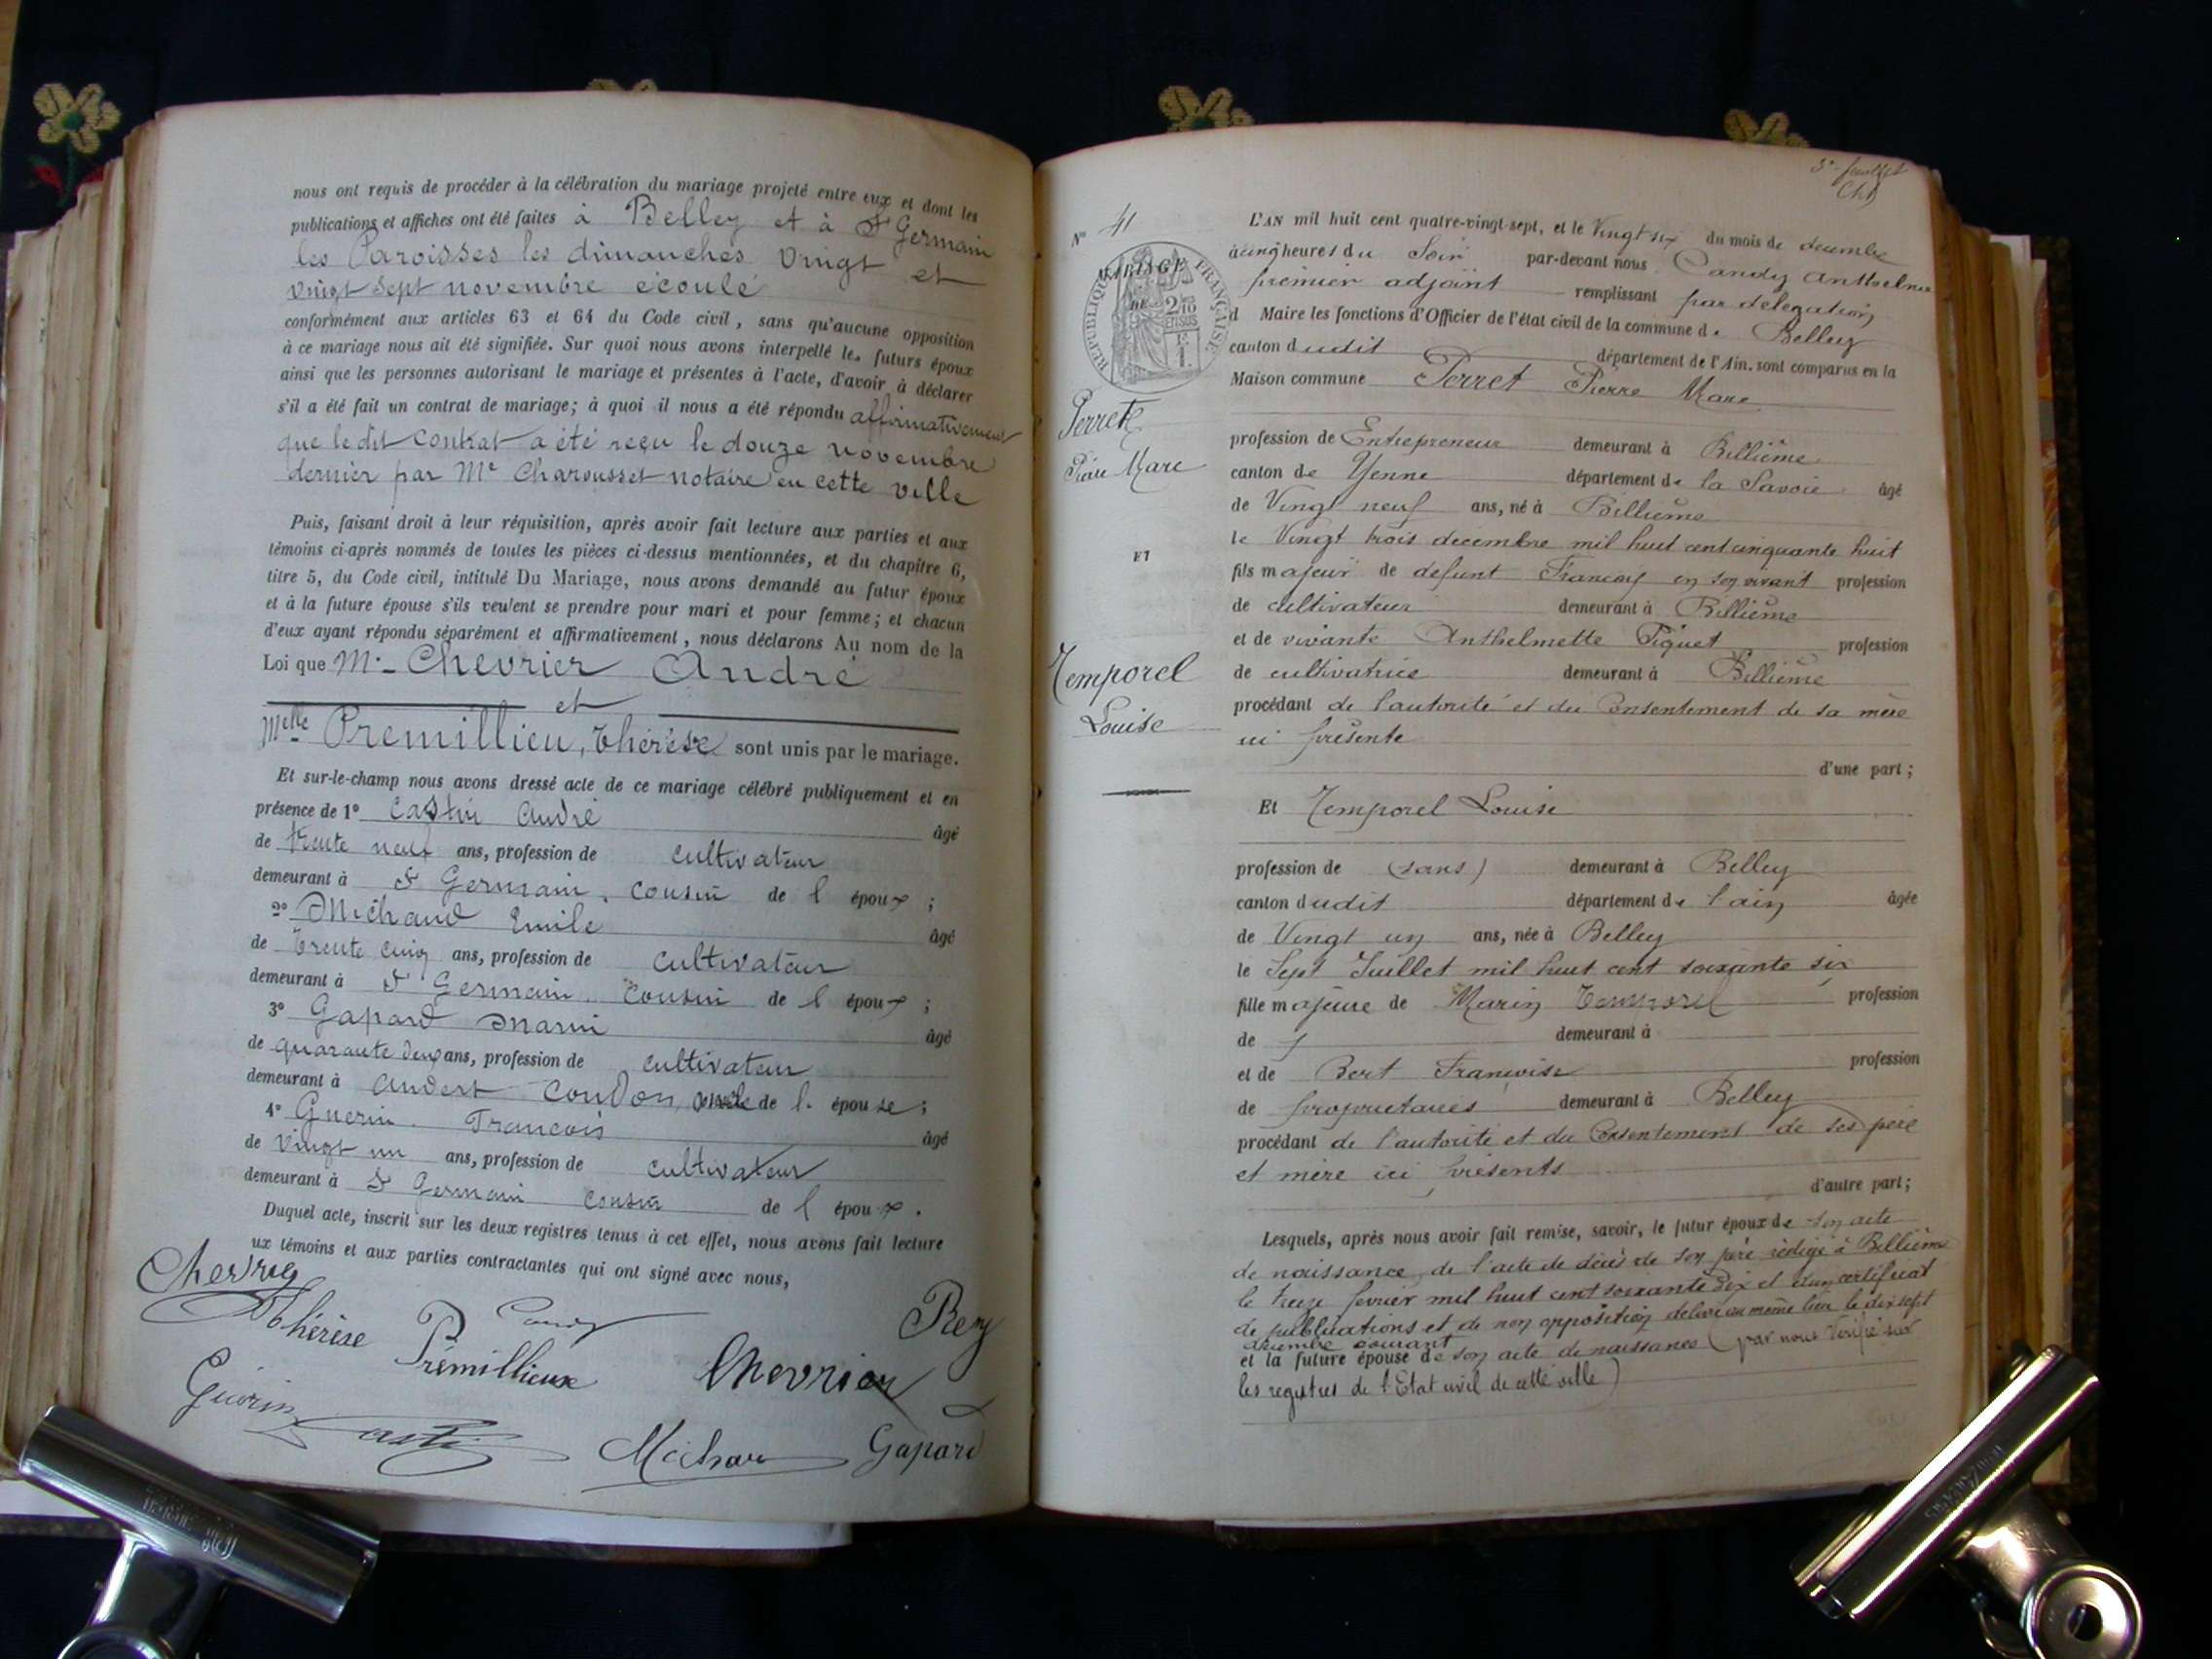 nous ont requis de procéder à la célébration du mariage projeté entre eux et dont les
publications et affiches ont été faites à Belley et à St Germain
les Paroisses les dimanches vingt et
vingt sept novembre écoulé
conformément aux articles 63 et 64 du Code civil, sans qu'aucune opposition
à ce mariage nous ait été signifiée. Sur quoi nous avons interpellé les futurs époux
ainsi que les personnes autorisant le mariage et présentes à l'acte, d'avoir à déclarer
s'il a été fait un contrat de mariage; à quoi il nous a été répondu affirmativement
que le dit contrat a été reçu le douze novembre
dernier par Me Charousset notaire en cette ville
Puis, faisant droit à leur réquisition, après avoir fait lecture aux parties et aux
témoins ci-après nommés de toutes les pièces ci-dessus mentionnées, et du chapitre 6,
titre 5, du Code civil, intitulé Du Mariage, nous avons demandé au futur époux
et à la future épouse s'ils veulent se prendre pour mari et pour femme; et chacun
d'eux ayant répondu séparément et affirmativement, nous déclarons Au nom de la
Loi que Mr Chevrier André
et
Melle Premillieu, Thérèse sont unis par le mariage.
Et sur-le-champ nous avons dressé acte de ce mariage célébré publiquement et en
présence de 1° Castin André âgé
de trente neuf ans, profession de cultivateur
demeurant à St Germain, cousin de l époux ;
2° Michaud Emile âgé
de trente cinq ans, profession de cultivateur
demeurant à St Germain, cousin de l époux ;
3° Gapard Marin âgé
de quarante deux ans, profession de cultivateur
demeurant à Andert Condon, oncle de l. épouse ;
4° Guerin François âgé
de vingt un ans, profession de cultivateur
demeurant à St Germain cousin de l époux .
Duquel acte, inscrit sur les deux registres tenus à cet effet, nous avons fait lecture
ux témoins et aux parties contractantes qui ont signé avec nous,
Thérèse Prémillieux
Chevrier
Guérin
Michau
Gapard
3e feuillet
N° 41
MARIAGE
DE
RÉPUBLIQUE FRANÇAISE
Perret
Pierre Marc
ET
Temporel
Louise
L'AN mil huit cent quatre-vingt-sept, et le vingt six du mois de decembre
à cinq heures du Soir par-devant nous Candy Anthelme
premier adjoint remplissant par delegation
d Maire les fonctions d'Officier de l'état civil de la commune de Belley
canton dudit département de l'Ain, sont comparus en la
Maison commune Perret Pierre Marc
profession de Entrepreneur demeurant à Billième
canton de Yenne département de la Savoie âgé
de Vingt neuf ans, né à Billième
le Vingt trois decembre mil huit cent cinquante huit
fils majeur de defunt François en son vivant profession
de cultivateur demeurant à Billième
et de vivante Anthelmette Piquet profession
de cultivatrice demeurant à Billième
procédant de l'autorité et du Consentement de sa mère
ici présente
d'une part ;
Et Temporel Louise
profession de (sans) demeurant à Belley
canton dudit département de l'ain âgée
de Vingt un ans, née à Belley
le Sept Juillet mil huit cent soixante six
fille majeure de Marin Temporel profession
de demeurant à
et de Bert Françoise profession
de propriétaires demeurant à Belley
procédant de l'autorité et du Consentement de ses père
et mère ici présents
d'autre part ;
Lesquels, après nous avoir fait remise, savoir, le futur époux de son acte
de naissance, de l'acte de décès de son père rédigé à Billième
le treize fevrier mil huit cent soixante dix et d'un certificat
de publications et de non opposition delivré au même lieu le dix sept
decembre courant
et la future épouse de son acte de naissance (par nous verifié sur
les registres de l'Etat civil de cette ville)